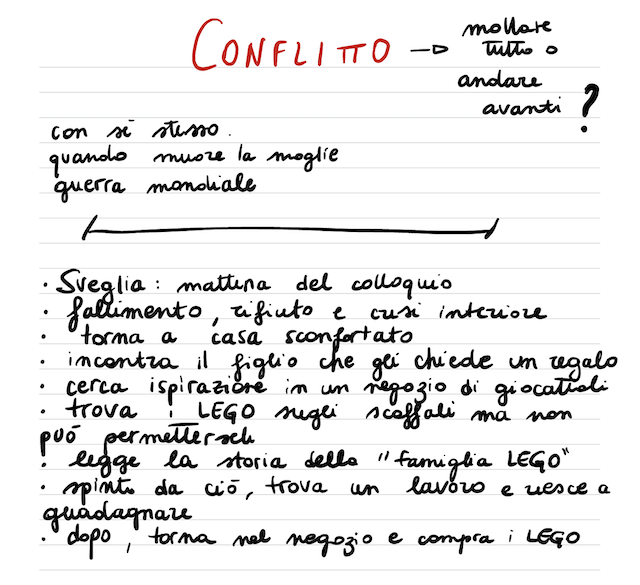 CONFLITTO → mollare
tutto o
andare
avanti ?
con sé stesso.
quando muore la moglie
guerra mondiale
· Sveglia : mattina del colloquio
· fallimento, rifiuto e crisi interiore
· torna a casa sconfortato
· incontra il figlio che gli chiede un regalo
· cerca ispirazione in un negozio di giocattoli
· trova i LEGO sugli scaffali ma non
può permetterseli
· legge la storia della "famiglia LEGO"
· spinto da ciò, trova un lavoro e riesce a
guadagnare
· dopo, torna nel negozio e compra i LEGO